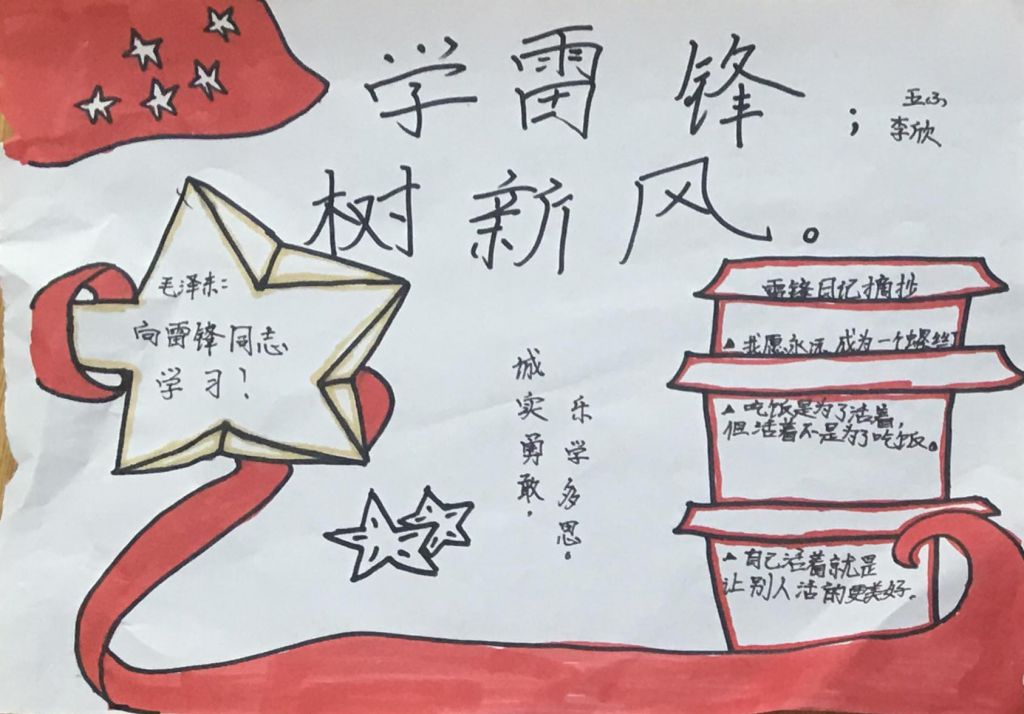 学雷锋;
树新风。
李欣
毛泽东:
向雷锋同志
学习!
城实勇敢,
乐学多思。
雷锋日记摘抄
▲我愿永远成为一个螺丝丁
▲吃饭是为了活着,
但活着不是为了吃饭。
▲自己活着就是
让别人活的更美好。